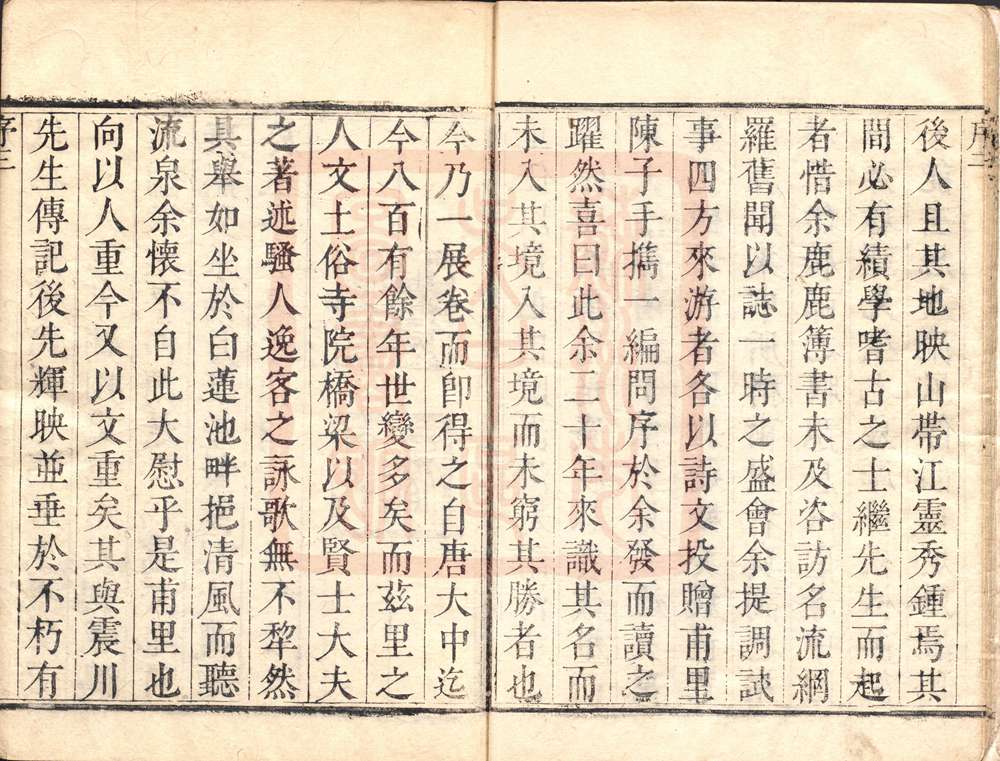 序二
後人且其地映山帶江靈秀鍾焉其
間必有績學嗜古之士繼先生而起
者惜余鹿鹿簿書未及咨訪名流網
羅舊聞以誌一時之盛會余提調試
事四方來游者各以詩文投贈甫里
陳子手攜一編問序於余發而讀之
躍然喜曰此余二十年來識其名而
未入其境入其境而未窮其勝者也
今乃一展卷而卽得之自唐大中迄
今八百有餘年世變多矣而茲里之
人文土俗寺院橋梁以及賢士大夫
之著述騷人逸客之詠歌無不犁然
具舉如坐於白蓮池畔挹清風而聽
流泉余懷不自此大慰乎是甫里也
向以人重今又以文重矣其與震川
先生傳記後先輝映並垂於不朽有
序三